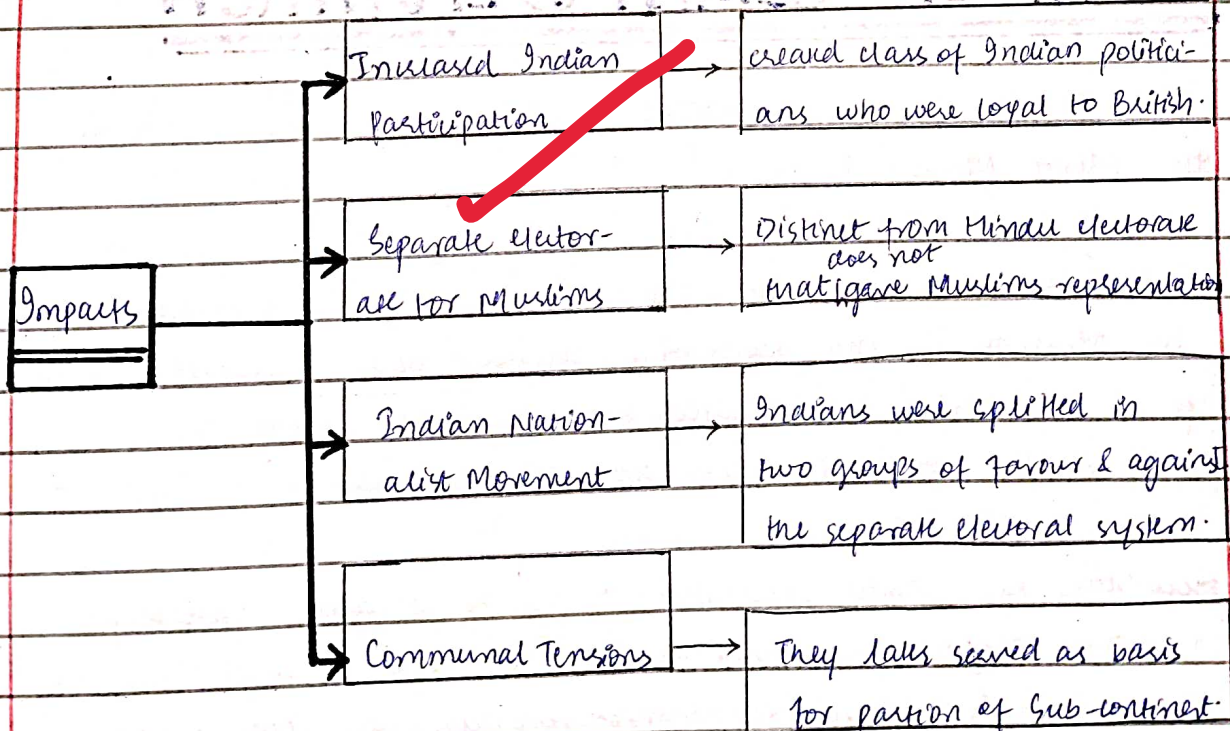 Impacts
Increased Indian
Participation
creard class of Indian politici-
ans who were loyal to British.
Separate elector-
ate for Muslims
Distinct from Hindu electorate
does not
that gave Muslims representation
Indian Nation-
alist Movement
Indians were splitted in
two groups of favour & against
the separate electoral system.
Communal Tensions
They later served as basis
for partion of Sub-continent.